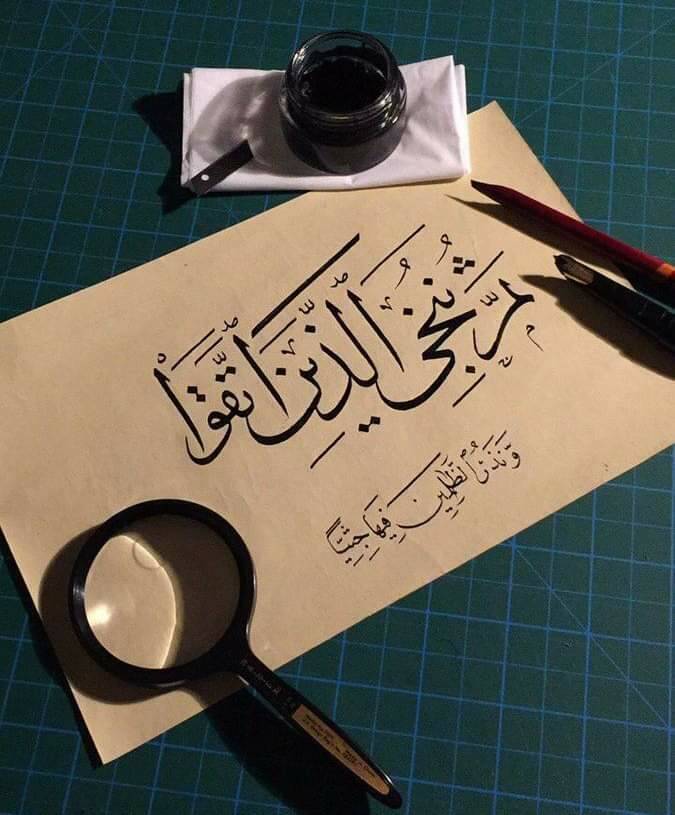 ثُمَّ نُنَجِّى الَّذِينَ اتَّقَوْا
وَّنَذَرُ الظّٰلِمِينَ فِيهَا جِثِيًّا